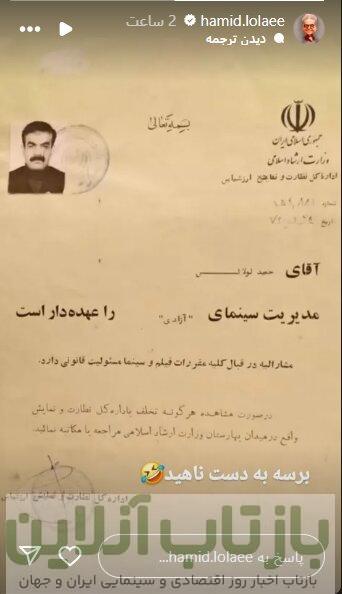 hamid.lolaee 2 ساعت
دیدن ترجمه
بسمه‌تعالی
جمهوری اسلامی ایران
وزارت ارشاد اسلامی
اداره کل نظارت و نمایش
شماره
تاریخ
آقای حمید لولائی
مدیریت سینمای "آزادی" را عهده‌دار است
مشارالیه در قبال کلیه مقررات فیلم و سینما مسئولیت قانونی دارد.
درصورت مشاهده هرگونه تخلف باداره کل نظارت و نمایش
واقع درمیدان بهارستان وزارت ارشاد اسلامی مراجعه یا مکاتبه نمائید.
برسه به دست ناهید🤣
اداره کل نظارت و نمایش
بازتاب آنلاین
پاسخ به hamid.lolaee...
بازتاب اخبار روز اقتصادی و سینمایی ایران و جهان